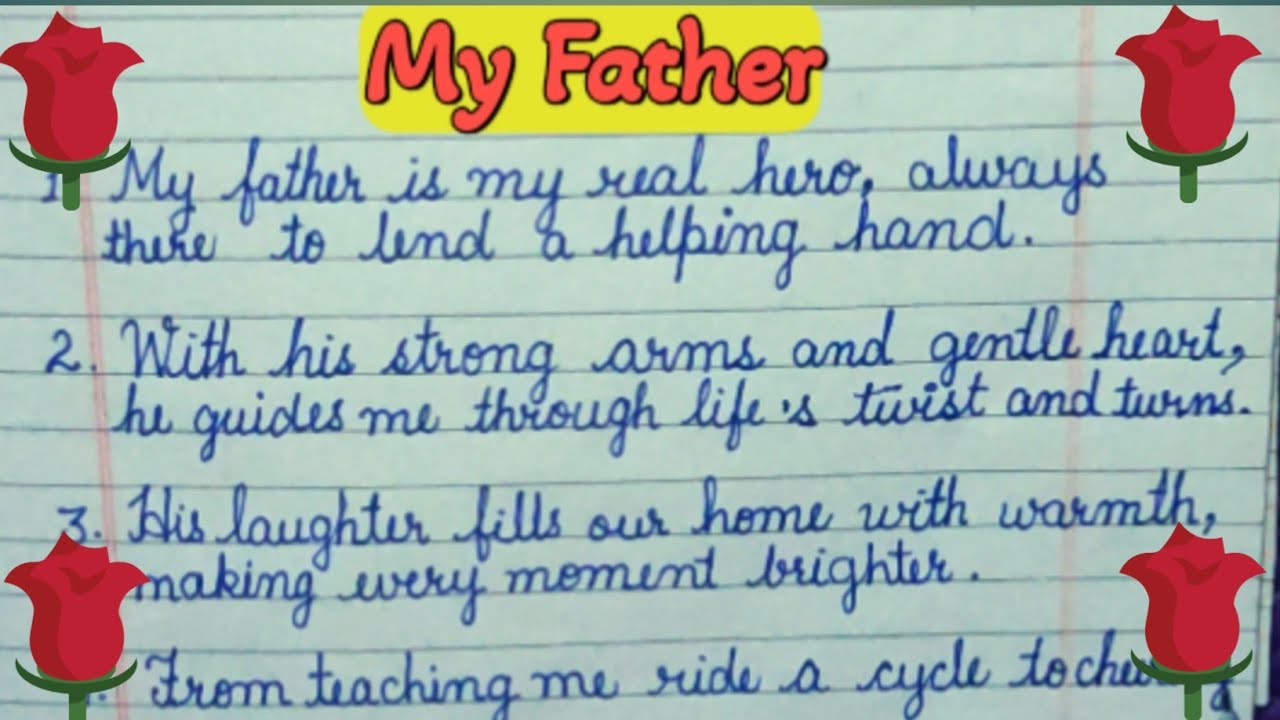 My Father
1. My father is my real hero, always
there to lend a helping hand.
2. With his strong arms and gentle heart,
he guides me through life's twist and turns.
3. His laughter fills our home with warmth,
making every moment brighter.
From teaching me ride a cycle to